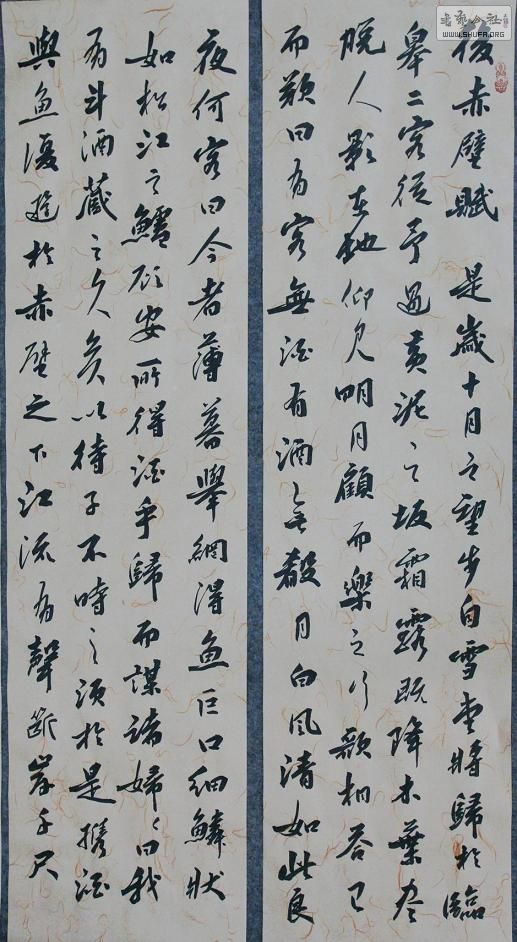 後赤壁賦 是歲十月之望步自雪堂將歸於臨
皋二客從予過黃泥之坂霜露既降木葉盡
脫人影在地仰見明月顧而樂之行歌相答已
而歎曰有客無酒有酒無殽月白風清如此良
夜何客曰今者薄暮舉網得魚巨口細鱗狀
如松江之鱸顧安所得酒乎歸而謀諸婦〻曰我
有斗酒藏之久矣以待子不時之須於是攜酒
與魚復遊於赤壁之下江流有聲斷岸千尺
WWW.SHUFA.ORG